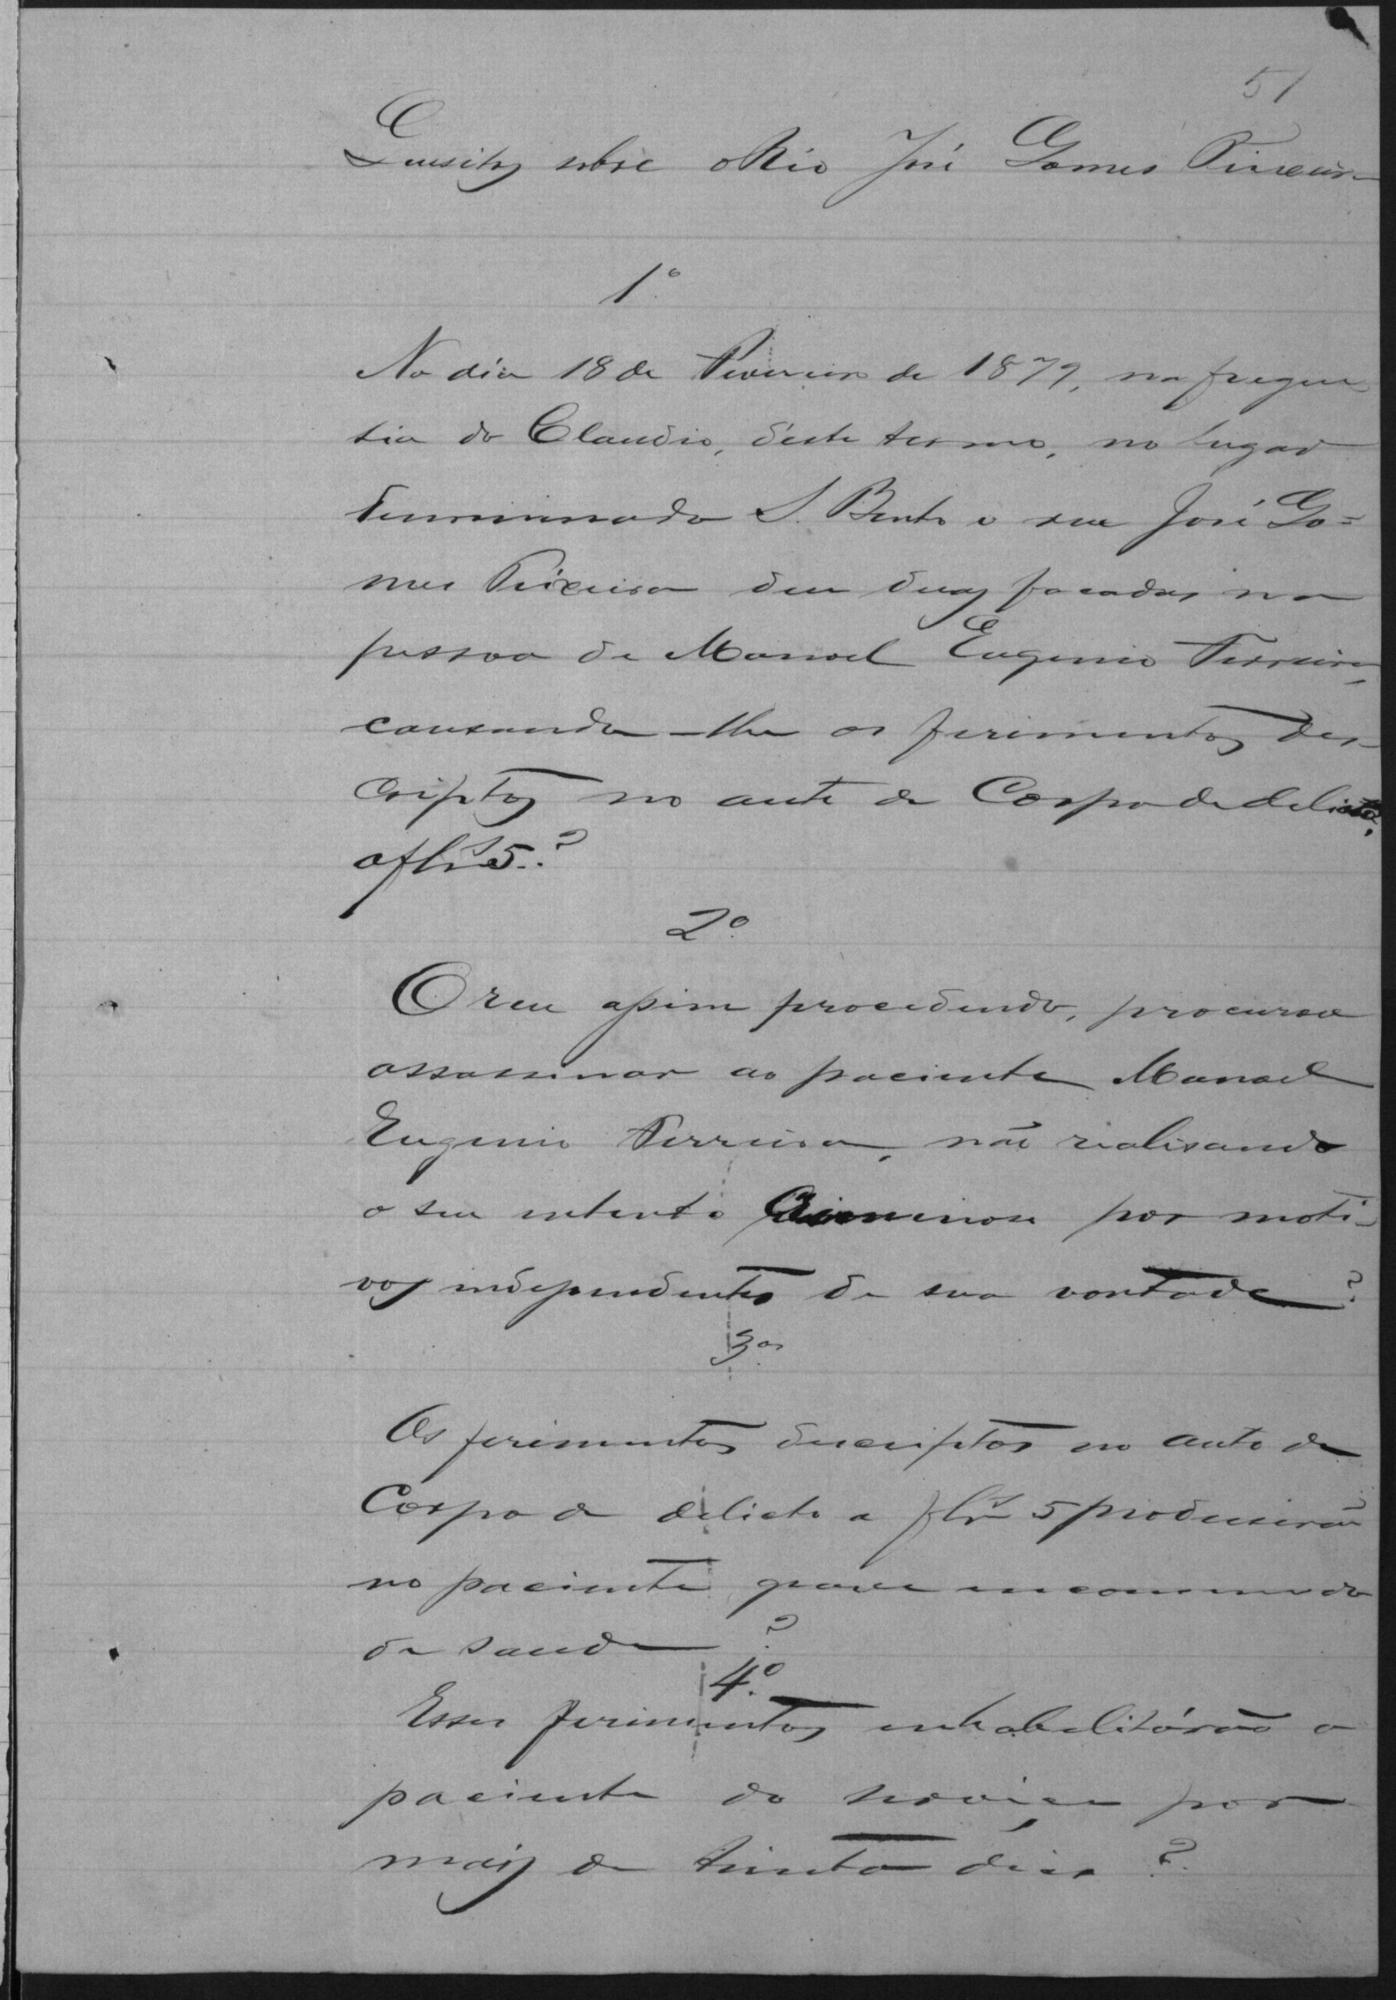 51
Quesitos sobre o Réo José Gomes Teixeira
1º
No dia 18 de Fevereiro de 1879, na fregue
sia do Claudio, d'este termo, no lugar
denominado S. Bento o reu José Go=
mes Teixeira deu duas facadas na
pessoa de Manoel Eugenio Ferreira,
causando-lhe os ferimentos des-
criptos no auto de Corpo de delicto,
a flrs 5.?
2º
O reu assim procedendo, procurou
assassinar ao paciente Manoel
Eugenio Ferreira, não realisando
o seu intento Criminoso por moti-
vos independentes de sua vontade?
3º
Os ferimentos descriptos no auto de
Corpo de delicto a flrs 5 produsirão
no paciente grave incommodo
de saude ?
4º
Esses ferimentos inhabilitárão o
paciente do serviço por
mais de trinta dias ?